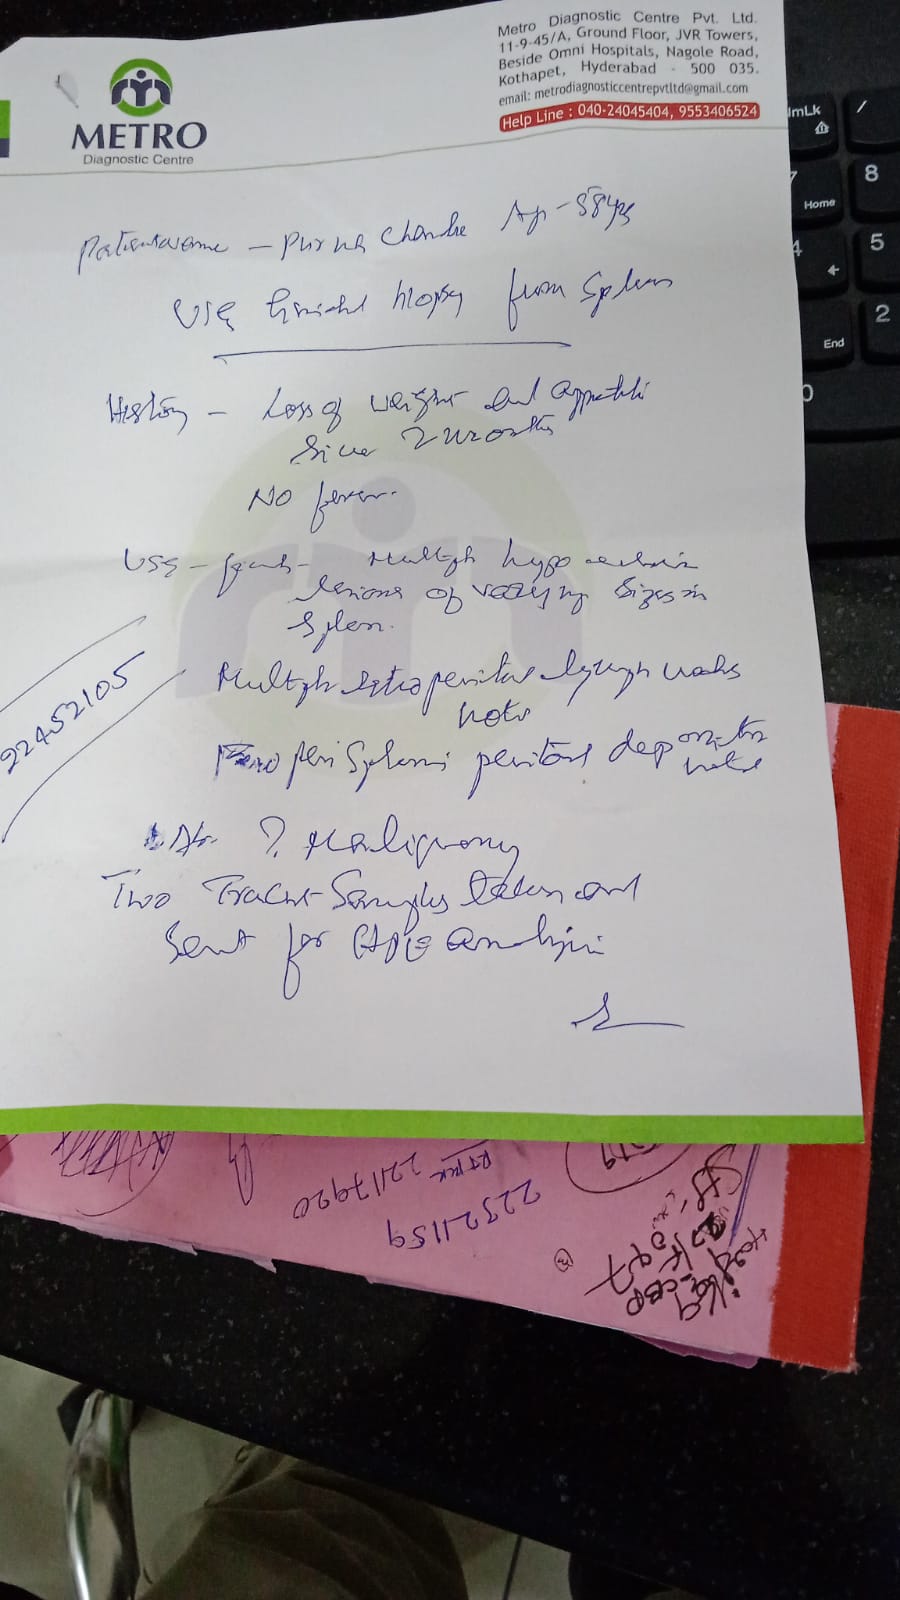 Metro Diagnostic Centre Pvt. Ltd.
11-9-45/A, Ground Floor, JVR Towers,
Beside Omni Hospitals, Nagole Road,
Kothapet, Hyderabad - 500 035.
email: metrodiagnosticcentrepvtltd@gmail.com
Help Line : 040-24045404, 9553406524
METRO
Diagnostic Centre
Patient name - Purna Chandra Age - 58yrs
USG Guided biopsy from Spleen
History - Loss of weight and appetite
Since 2 months
No fever.
USG - Multiple hypo echoic
lesions of varying sizes in
Spleen.
Multiple retroperitoneal lymph nodes
noted
peri Splenic peritoneal deposits
noted
? Malignancy
Two Tract Samples taken and
Sent for HPE analysis
22452105
22117920
22321159
NumLk
/
7
Home
8
4
5
End
2
0